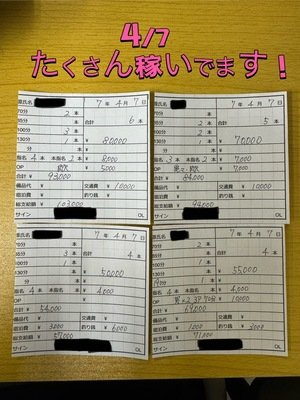 4/7
たくさん稼いでます！
源氏名
7年 4月 7日
70分 2 本
85分 本 合計 6 本
100分 3 本
130分 1 本 ¥ 80,000
分 本 ¥
指名 4 本 本指名 2 本 ¥ 8,000
OP 飲 ¥ 5,000
合計 ¥ 93,000
備品代 ¥ 交通費 ¥ 10000
宿泊費 ¥ 釣り銭 ¥
総支給額 ¥ 103,000
サイン OL
源氏名
7年 4月 7日
70分 1 本
85分 1 本 合計 5 本
100分 2 本
130分 1 本 ¥ 70,000
分 本 ¥
指名 3 本 本指名 2 本 ¥ 7,000
OP ¥ 7,000
合計 ¥ 84,000
備品代 ¥ 交通費 ¥ 10000
宿泊費 ¥ 釣り銭 ¥
総支給額 ¥ 94,000
サイン OL
源氏名
7年 4月 7日
70分 本
85分 3 本 合計 4 本
100分 1 本
130分 本 ¥ 50,000
分 本 ¥
指名 4 本 本指名 本 ¥ 4,000
OP ¥
合計 ¥ 54,000
備品代 ¥ 交通費 ¥
宿泊費 ¥ 3000 釣り銭 ¥ 6,000
総支給額 ¥ 57,000
サイン OL
源氏名
7年 4月 7日
70分 2 本
85分 本 合計 4 本
100分 1 本
130分 本 ¥ 55,000
190分 1 本 ¥
指名 4 本 本指名 本 ¥ 4,000
OP ¥ 10000
合計 ¥ 69,000
備品代 ¥ 交通費 ¥
宿泊費 ¥ 1000 釣り銭 ¥ 3000
総支給額 ¥ 71,000
サイン OL